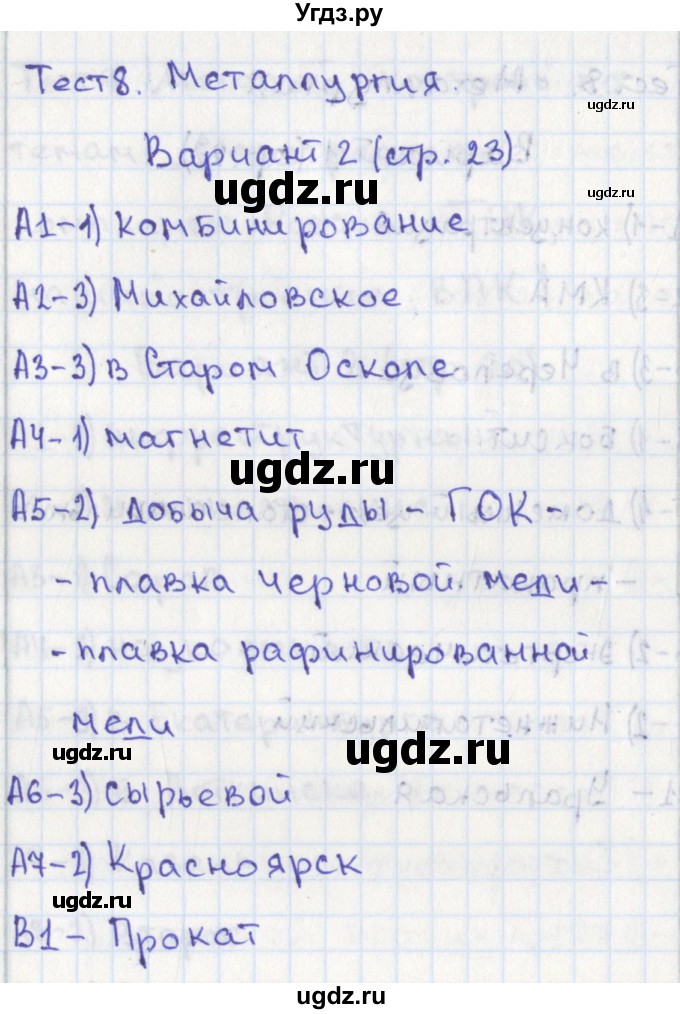 Угдз.ру
Тест 8. Металлургия.
ugdz.ru
Вариант 2 (стр. 23)
ugdz.ru
ugdz.ru
А1-1) комбинирование
А2-3) Михайловское
А3-3) в Старом Осколе
ugdz.ru
А4-1) магнетит
ugdz.ru
ugdz.ru
А5-2) добыча руды - ГОК -
- плавка черновой меди -
- плавка рафинированной
меди
ugdz.ru
ugdz.ru
А6-3) сырьевой
А7-2) Красноярск
ugdz.ru
В1 - Прокат
ugdz.ru